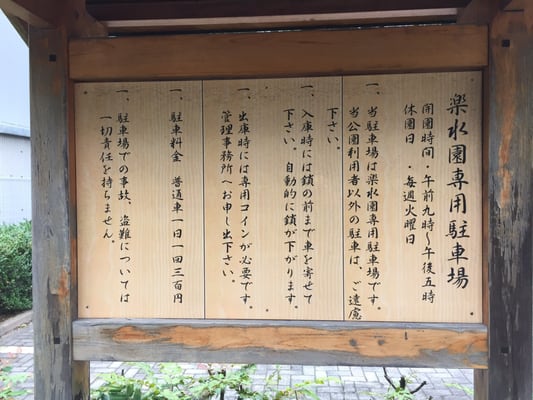 楽水園専用駐車場
開園時間・午前九時～午後五時
休園日　・毎週火曜日
一、当駐車場は楽水園専用駐車場です。
当公園利用者以外の駐車は、ご遠慮
下さい。
一、入庫時には鎖の前まで車を寄せて
下さい。自動的に鎖が下がります。
一、出庫時には専用コインが必要です。
管理事務所へお申し出下さい。
一、駐車料金　普通車一日一四三百円
一、駐車場での事故、盗難については
一切責任を持ちません。